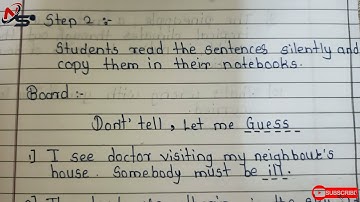 Step 2 :-
Students read the sentences silently and
copy them in their notebooks.
Board :-
Dont' tell, Let me Guess
1) I see doctor visiting my neighbour's
house. Somebody must be ill.
SUBSCRIBE